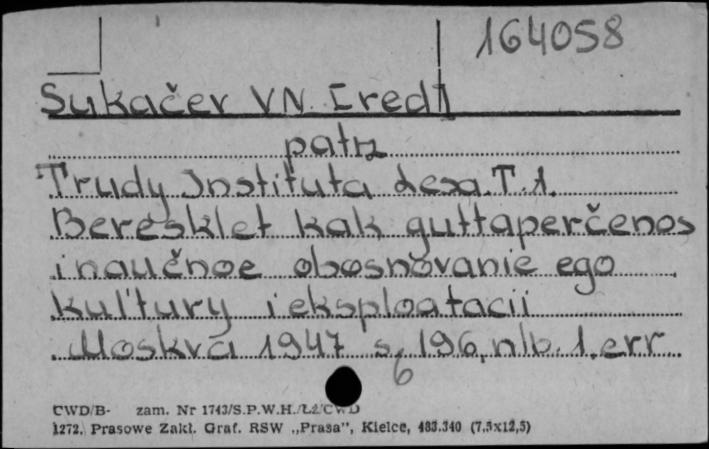 164058
Sukačev VN. [red]
patrz
Trudy Instituta Lesa. T. 1.
Beresklet kak guttaperčenos
i naučnoe obosnovanie ego
kul'tury i eksploatacii
Moskva 1947 s. 196, nlb. 1. err.
6
CWD/B- zam. Nr 1743/S.P.W.H./ŁŻ/CWD
1272. Prasowe Zakł. Graf. RSW „Prasa", Kielce, 483.340 (7,5x12,5)